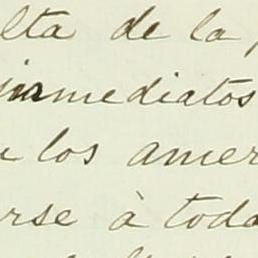 lta de la
inmediatos
los amer
rse à toda